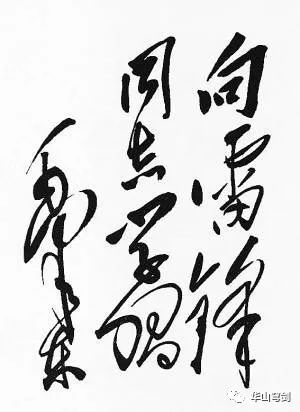 向雷锋
同志学习
毛泽东
华山穹剑